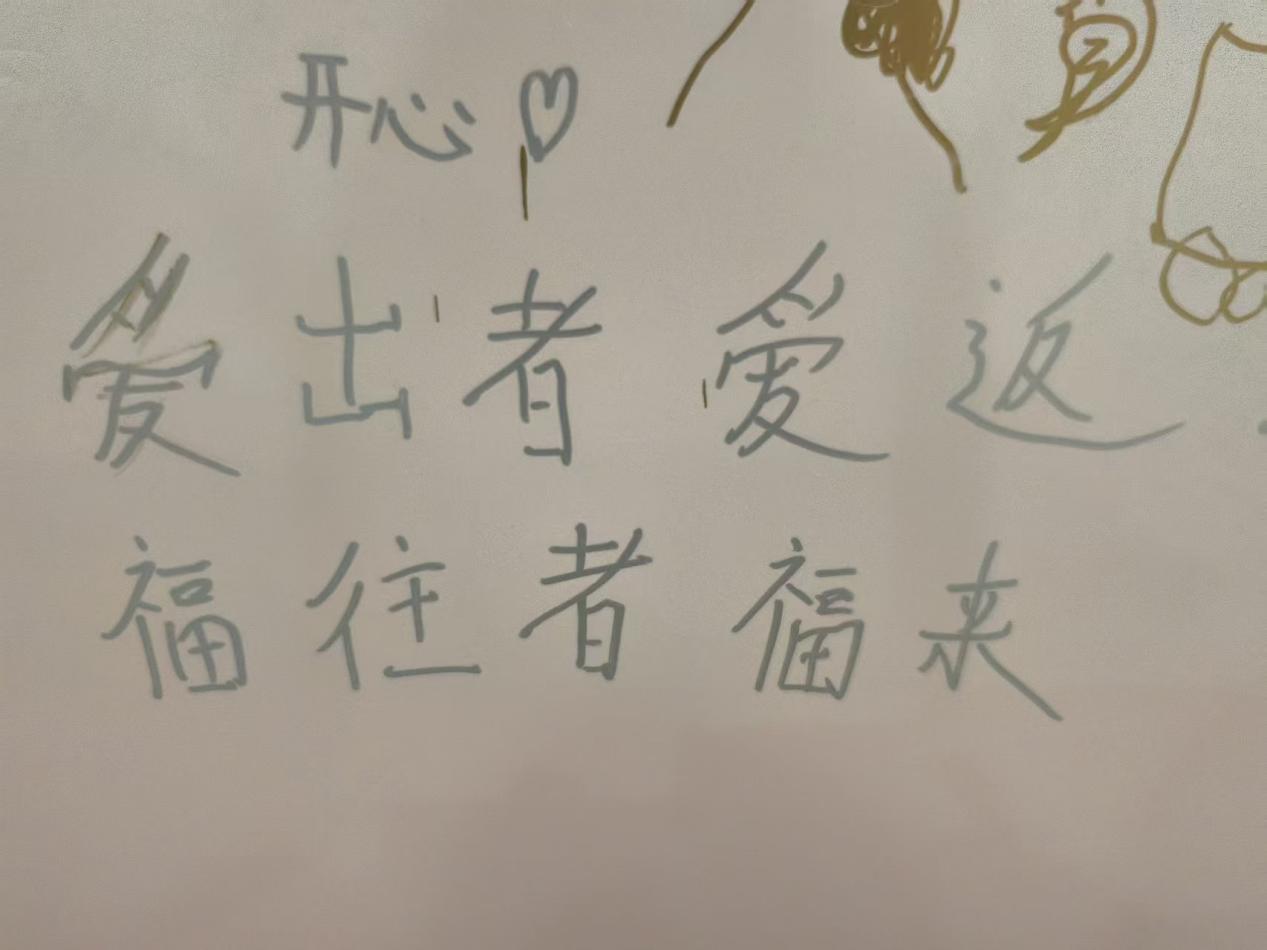 开心♡
爱出者爱返.
福往者福来